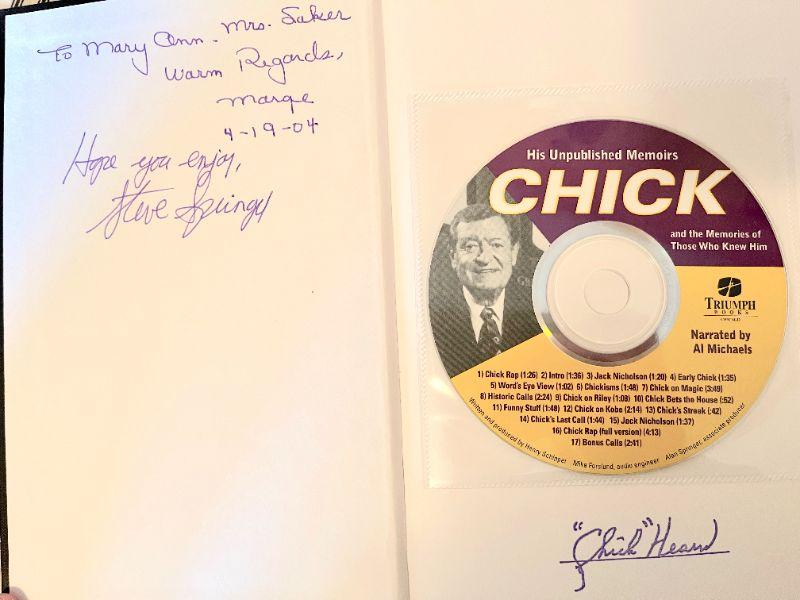 To Mary Ann - Mrs. Saker
Warm Regards,
Marge
4-19-04
Hope you enjoy,
Steve Springer
His Unpublished Memoirs
CHICK
and the Memories of
Those Who Knew Him
TRIUMPH
BOOKS
Narrated by
Al Michaels
1) Chick Rap (1:26) 2) Intro (1:36) 3) Jack Nicholson (1:20) 4) Early Chick (1:35)
5) Word's Eye View (1:02) 6) Chickisms (1:48) 7) Chick on Magic (3:49)
8) Historic Calls (2:24) 9) Chick on Riley (1:08) 10) Chick Bets the House (:52)
11) Funny Stuff (1:48) 12) Chick on Kobe (2:14) 13) Chick's Streak (:42)
14) Chick's Last Call (1:44) 15) Jack Nicholson (1:37)
16) Chick Rap (full version) (4:13)
17) Bonus Calls (2:41)
Written and produced by Henry Schipper Mike Forslund, audio engineer Alan Springer, associate producer
"Chick" Hearn